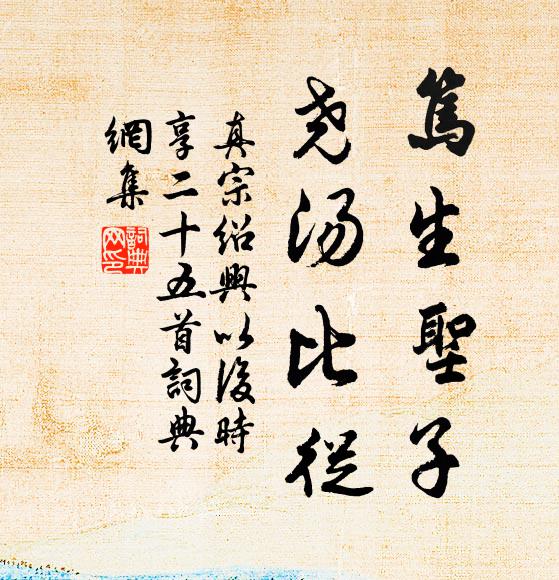 篤生聖子
尧湯比從
真宗紹興以後時
享二十五首詞典
網集
詞典網印